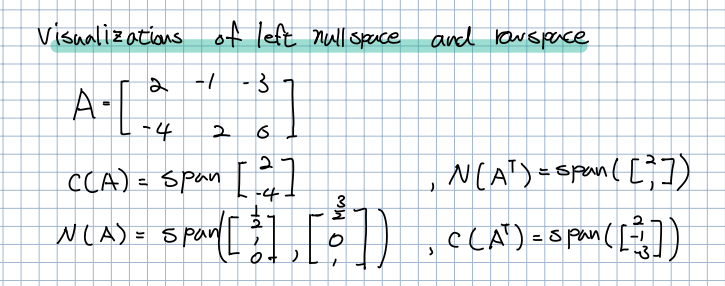 Visualizations of left nullspace and rowspace
A = [ 2 -1 -3
-4 2 6 ]
C(A) = span [ 2 -4 ] , N(Aᵀ) = span([ 2 1 ])
N(A) = span([ 1/2 1 0 ], [ 3/2 0 1 ]) , C(Aᵀ) = span([ 2 -1 -3 ])